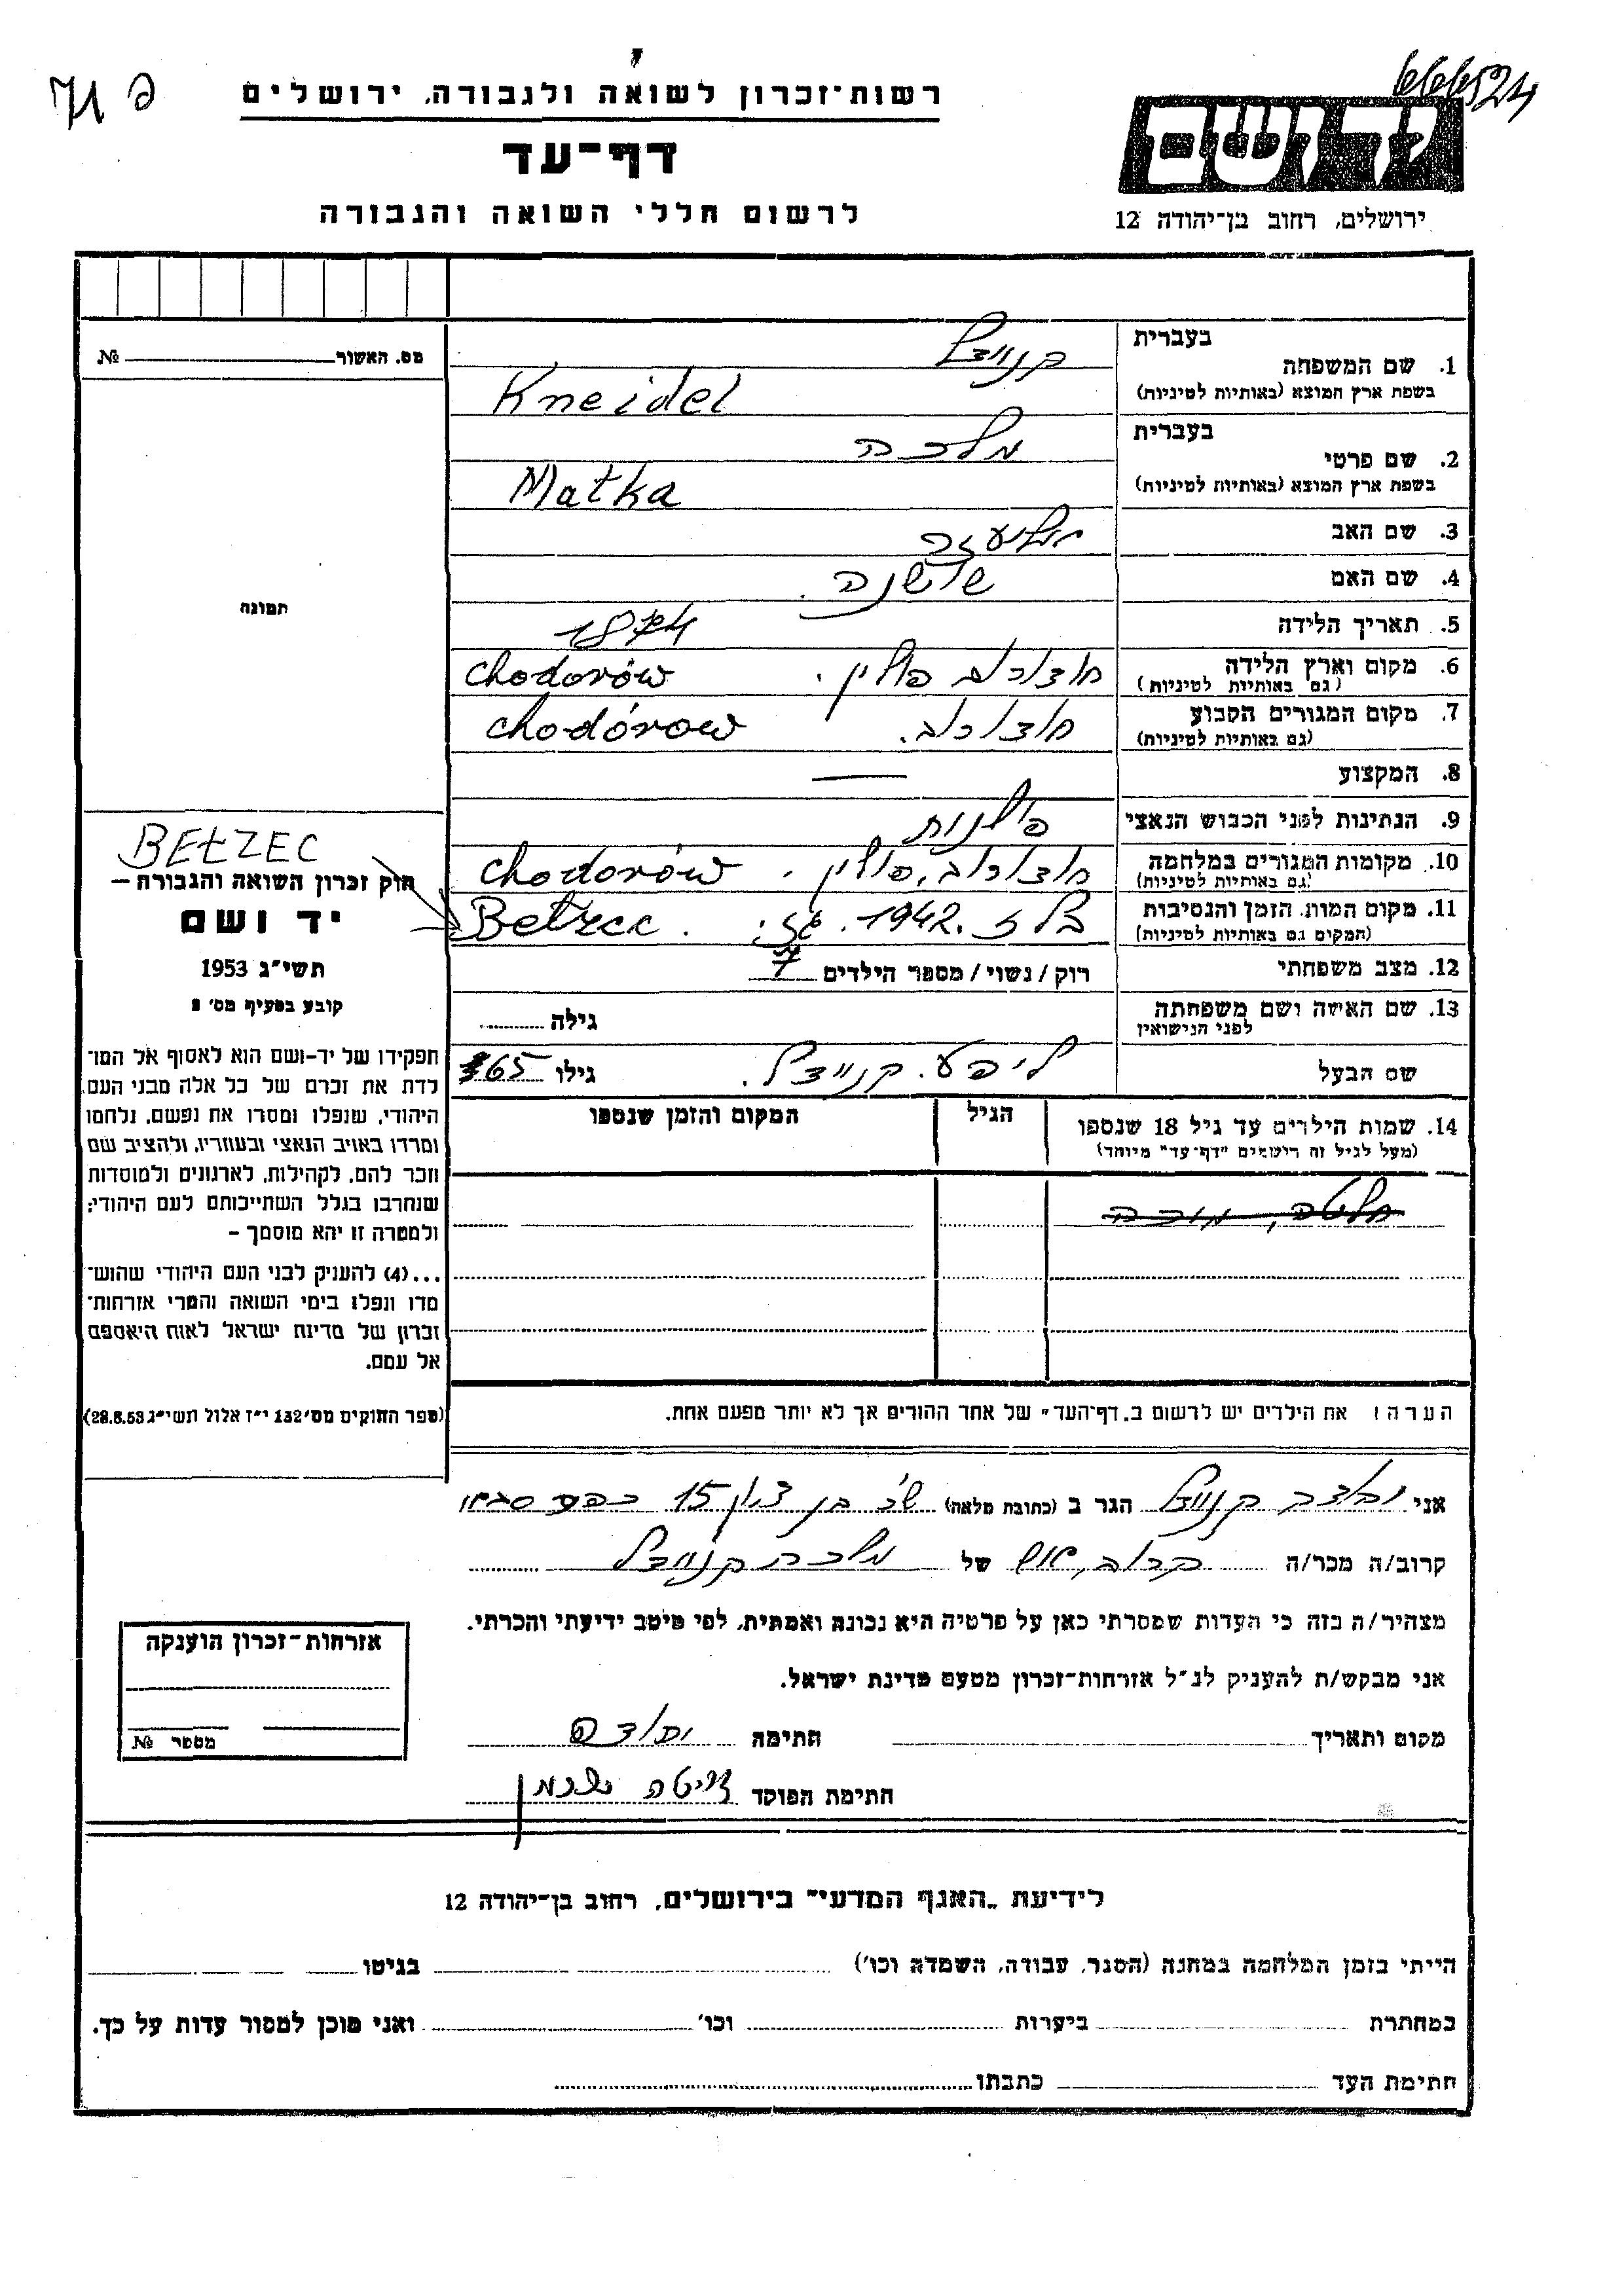 666524
פ 71
רשות־זכרון לשואה ולגבורה, ירושלים
דף־עד
לרשום חללי השואה והגבורה
יד ושם
ירושלים, רחוב בן־יהודה 12
מס. האשור № 
תמונה
1. שם המשפחה בעברית קניידל
בשפת ארץ המוצא (באותיות לטיניות) Kneidel
2. שם פרטי בעברית מלכה
בשפת ארץ המוצא (באותיות לטיניות) Matka
3. שם האב אליעזר
4. שם האם שושנה.
5. תאריך הלידה 1874
6. מקום וארץ הלידה (גם באותיות לטיניות) פולין. Chodorów
7. מקום המגורים הקבוע (גם באותיות לטיניות) Chodórow
8. המקצוע —
9. הנתינות לפני הכבוש הנאצי פולנות
10. מקומות המגורים במלחמה (גם באותיות לטיניות) פולין. Chodorów
11. מקום המות, הזמן והנסיבות (המקום גם באותיות לטיניות) 1942. Bełzec.
12. מצב משפחתי רוק/נשוי/מספר הילדים 7
13. שם האשה ושם משפחתה לפני הנישואין גילה
שם הבעל ליפע קניידל. גילו 65
14. שמות הילדים עד גיל 18 שנספו
(מעל לגיל זה רושמים "דף־עד" מיוחד)
הגיל
המקום והזמן שנספו
BEŁZEC
חוק זכרון השואה והגבורה –
יד ושם
תשי"ג 1953
קובע בסעיף מס' 2
תפקידו של יד-ושם הוא לאסוף אל המו־
לדת את זכרם של כל אלה מבני העם
היהודי, שנפלו ומסרו את נפשם, נלחמו
ומרדו באויב הנאצי ובעוזריו, ולהציב שם
וזכר להם, לקהילות, לארגונים ולמוסדות
שנחרבו בגלל השתייכותם לעם היהודי;
ולמטרה זו יהא מוסמך –
...(4) להעניק לבני העם היהודי שהוש־
מדו ונפלו בימי השואה והמרי אזרחות־
זכרון של מדינת ישראל לאות היאספם
אל עמם.
(ספר החוקים מס' 132 י"ז אלול תשי"ג 28.8.53)
הערה: את הילדים יש לרשום ב„דף־העד" של אחד ההורים אך לא יותר מפעם אחת.
אני קניידל הגר ב (כתובת מלאה) בן ציון 15 כפר סבא
קרוב/ה מכר/ה של מלכה קניידל
מצהיר/ה בזה כי העדות שמסרתי כאן על פרטיה היא נכונה ואמתית, לפי מיטב ידיעתי והכרתי.
אני מבקש/ת להעניק לנ"ל אזרחות־זכרון מטעם מדינת ישראל.
מקום ותאריך חתימה
חתימת הפוקד
אזרחות־זכרון הוענקה
מספר №
לידיעת „האגף המדעי" בירושלים, רחוב בן־יהודה 12
הייתי בזמן המלחמה במחנה (הסגר, עבודה, השמדה וכו') בגיטו
במחתרת ביערות וכו' ואני מוכן למסור עדות על כך.
חתימת העד כתבתו